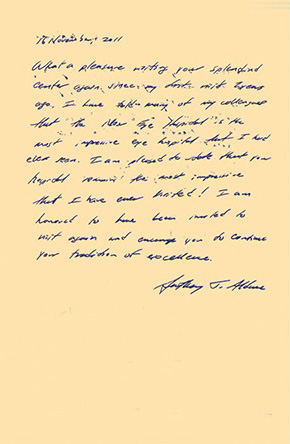 16 November, 2011
What a pleasure visiting your splendid
center again since my first visit 2 years
ago. I have told many of my colleagues
that the New Eye Hospital is the
most impressive eye hospital that I had
ever seen. I am pleased to state that your
hospital remains the most impressive
that I have ever visited! I am
honored to have been invited to
visit again and encourage you to continue
your tradition of excellence.
Anthony J.